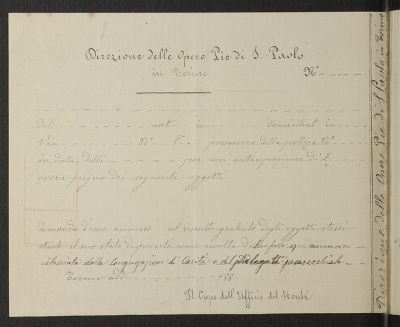 Direzione delle Opere Pie di S. Paolo
in Torino
N°
Del nat in domiciliat in
Via N° P. possessore della polizza N°
in data delli per un anticipazione di £
sovra pegno dei seguenti oggetti
Domanda d'esser ammesso al riscatto gratuito degli oggetti stessi
stante il suo stato di povertà come risulta di
rilasciata dalla Congregazione di Carità o del
Torino addì 188
Il Capo dell'Ufficio del Monte
Direzione delle Opere Pie di S. Paolo in Torino